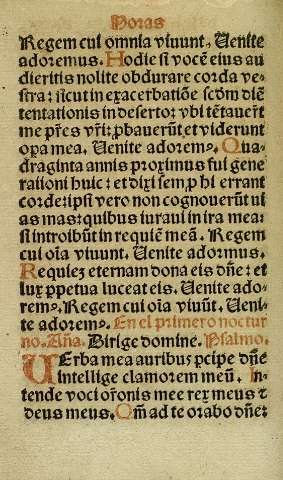 Horas
Regem cui omnia viuunt. Uenite
adoremus. Hodie si vocē eius au
dieritis nolite obdurare corda ve-
stra: sicut in exacerbatiōe scd̄m diē
tentationis in deserto: vbi tētauerūt
me p̄res vr̄i: ꝓbauerūt et viderunt
opera mea. Uenite adorem⁹. Qua-
draginta annis proximus fui gene
rationi huic: et dixi semꝑ hi errant
corde: ipsi vero non cognouerūt ui
as mas: quibus iuraui in ira mea:
si introibūt in requiē meā. Regem
cui oīa viuunt. Uenite adormus.
Requiez eternam dona eis dn̄e: et
lux ꝑpetua luceat eis. Uenite ado-
rem⁹. Regem cui oīa viuūt. Ueni-
te adorem⁹. En el primero noctur
no. Añа. Dirige domine. Psalmo.
UErba mea auribus ꝑcipe dn̄e
intellige clamorem meū. In-
tende voci or̄onis mee rex meus ⁊
deus meus. Qm̄ ad te orabo dn̄e: